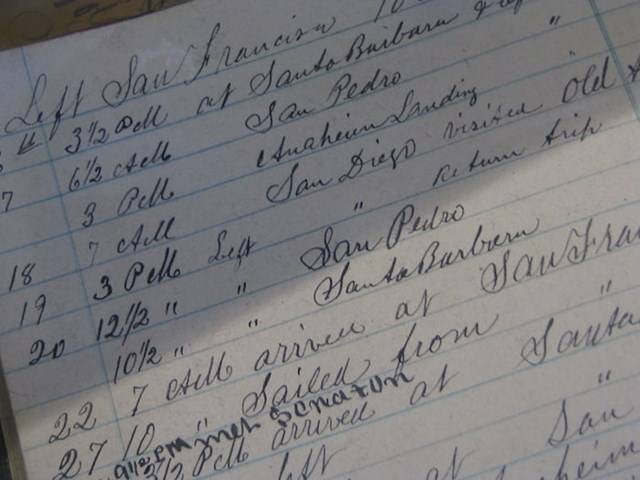 Left San Francisco 10
16 3 1/2 PM at Santa Barbara &
" 6 1/2 AM San Pedro "
17 3 PM Anaheim Landing "
7 AM San Diego visited Old
18 3 PM Left " Return trip
19 12 1/2 " " San Pedro
20 10 1/2 " " Santa Barbara
22 7 AM arrived at San Fran
27 10 " Sailed from "
9 1/2 PM met Senator
3 1/2 PM arrived at Santa
left "
at San